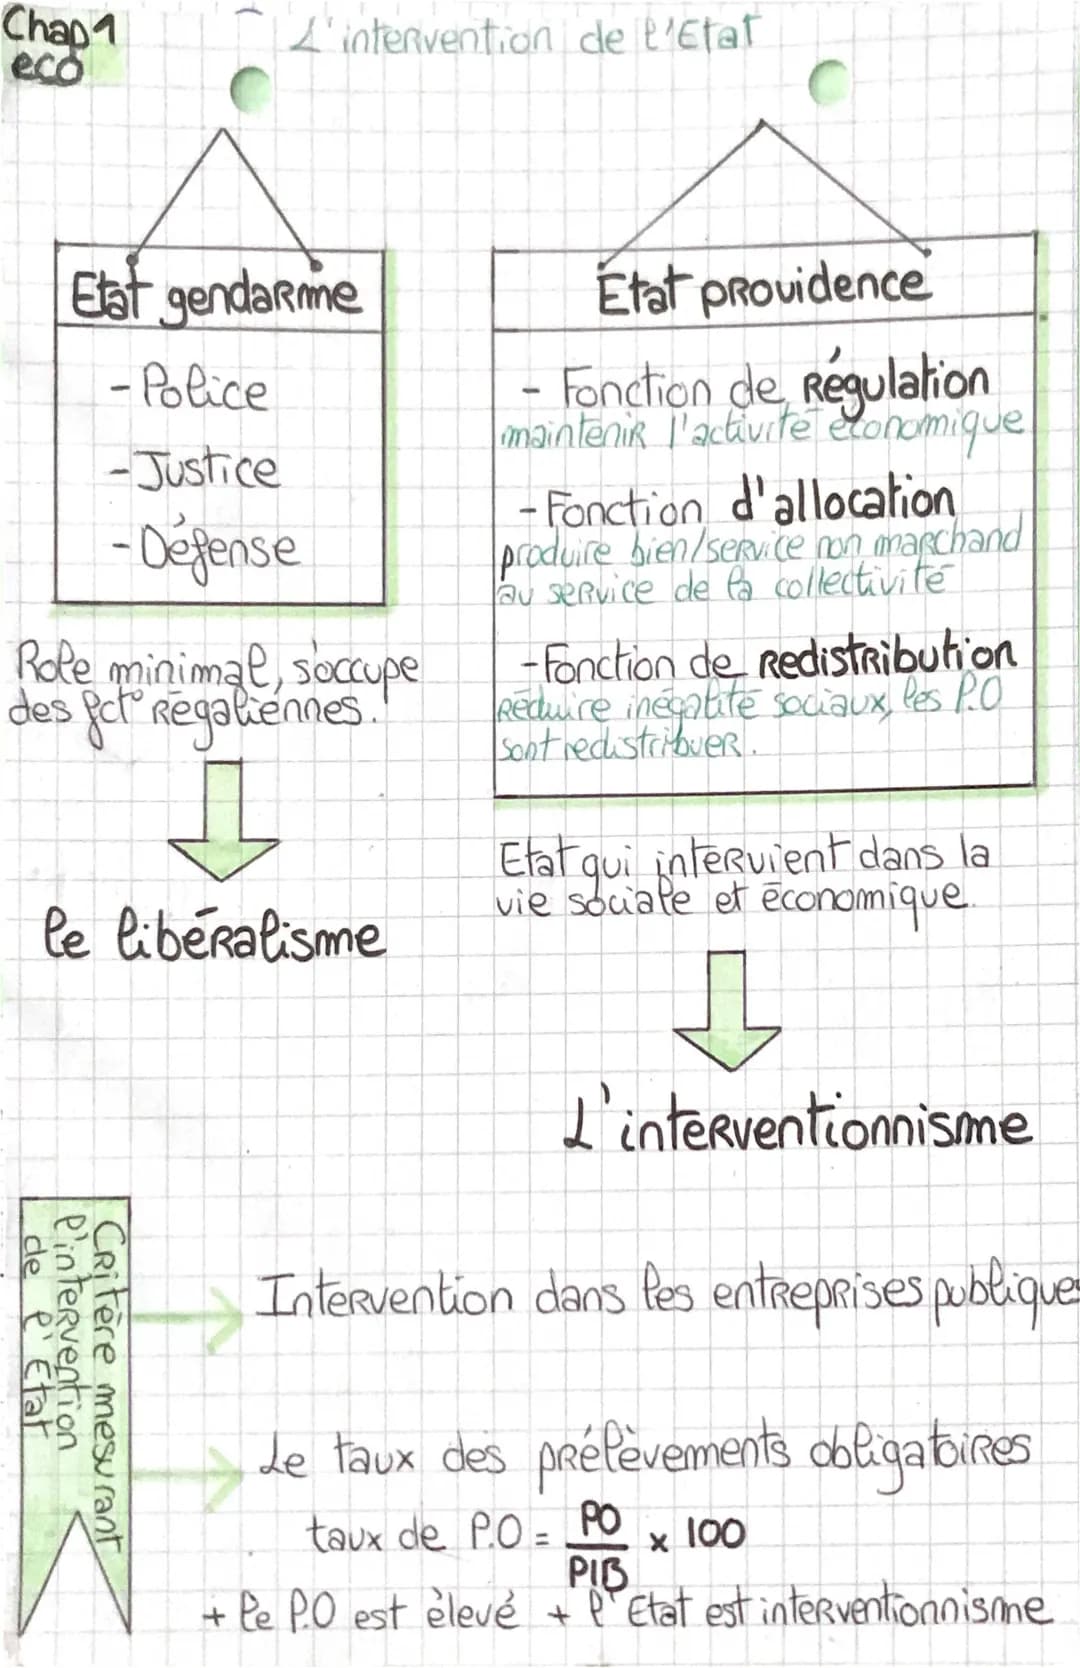 Chap 1
eco
L'intervention de l'Etat
Etat gendarme
- Police
- Justice
- Défense
Role minimal, s'occupe
des fct° Régaliennes.
le libéralisme
Etat providence
- Fonction de Régulation
maintenir l'activité économique
- Fonction d'allocation
produire bien/service non marchand
au service de la collectivité
- Fonction de Redistribution
Réduire inégalité sociaux, les P.O
sont redistribuer.
Etat qui intervient dans la
vie sociale et économique.
L'interventionnisme
Critère mesurant
l'intervention
de l'Etat
Intervention dans les entreprises publiques
Le taux des prélèvements obligatoires
taux de P.O = PO/PIB x 100
+ le P.O est élevé + l'Etat est interventionnisme